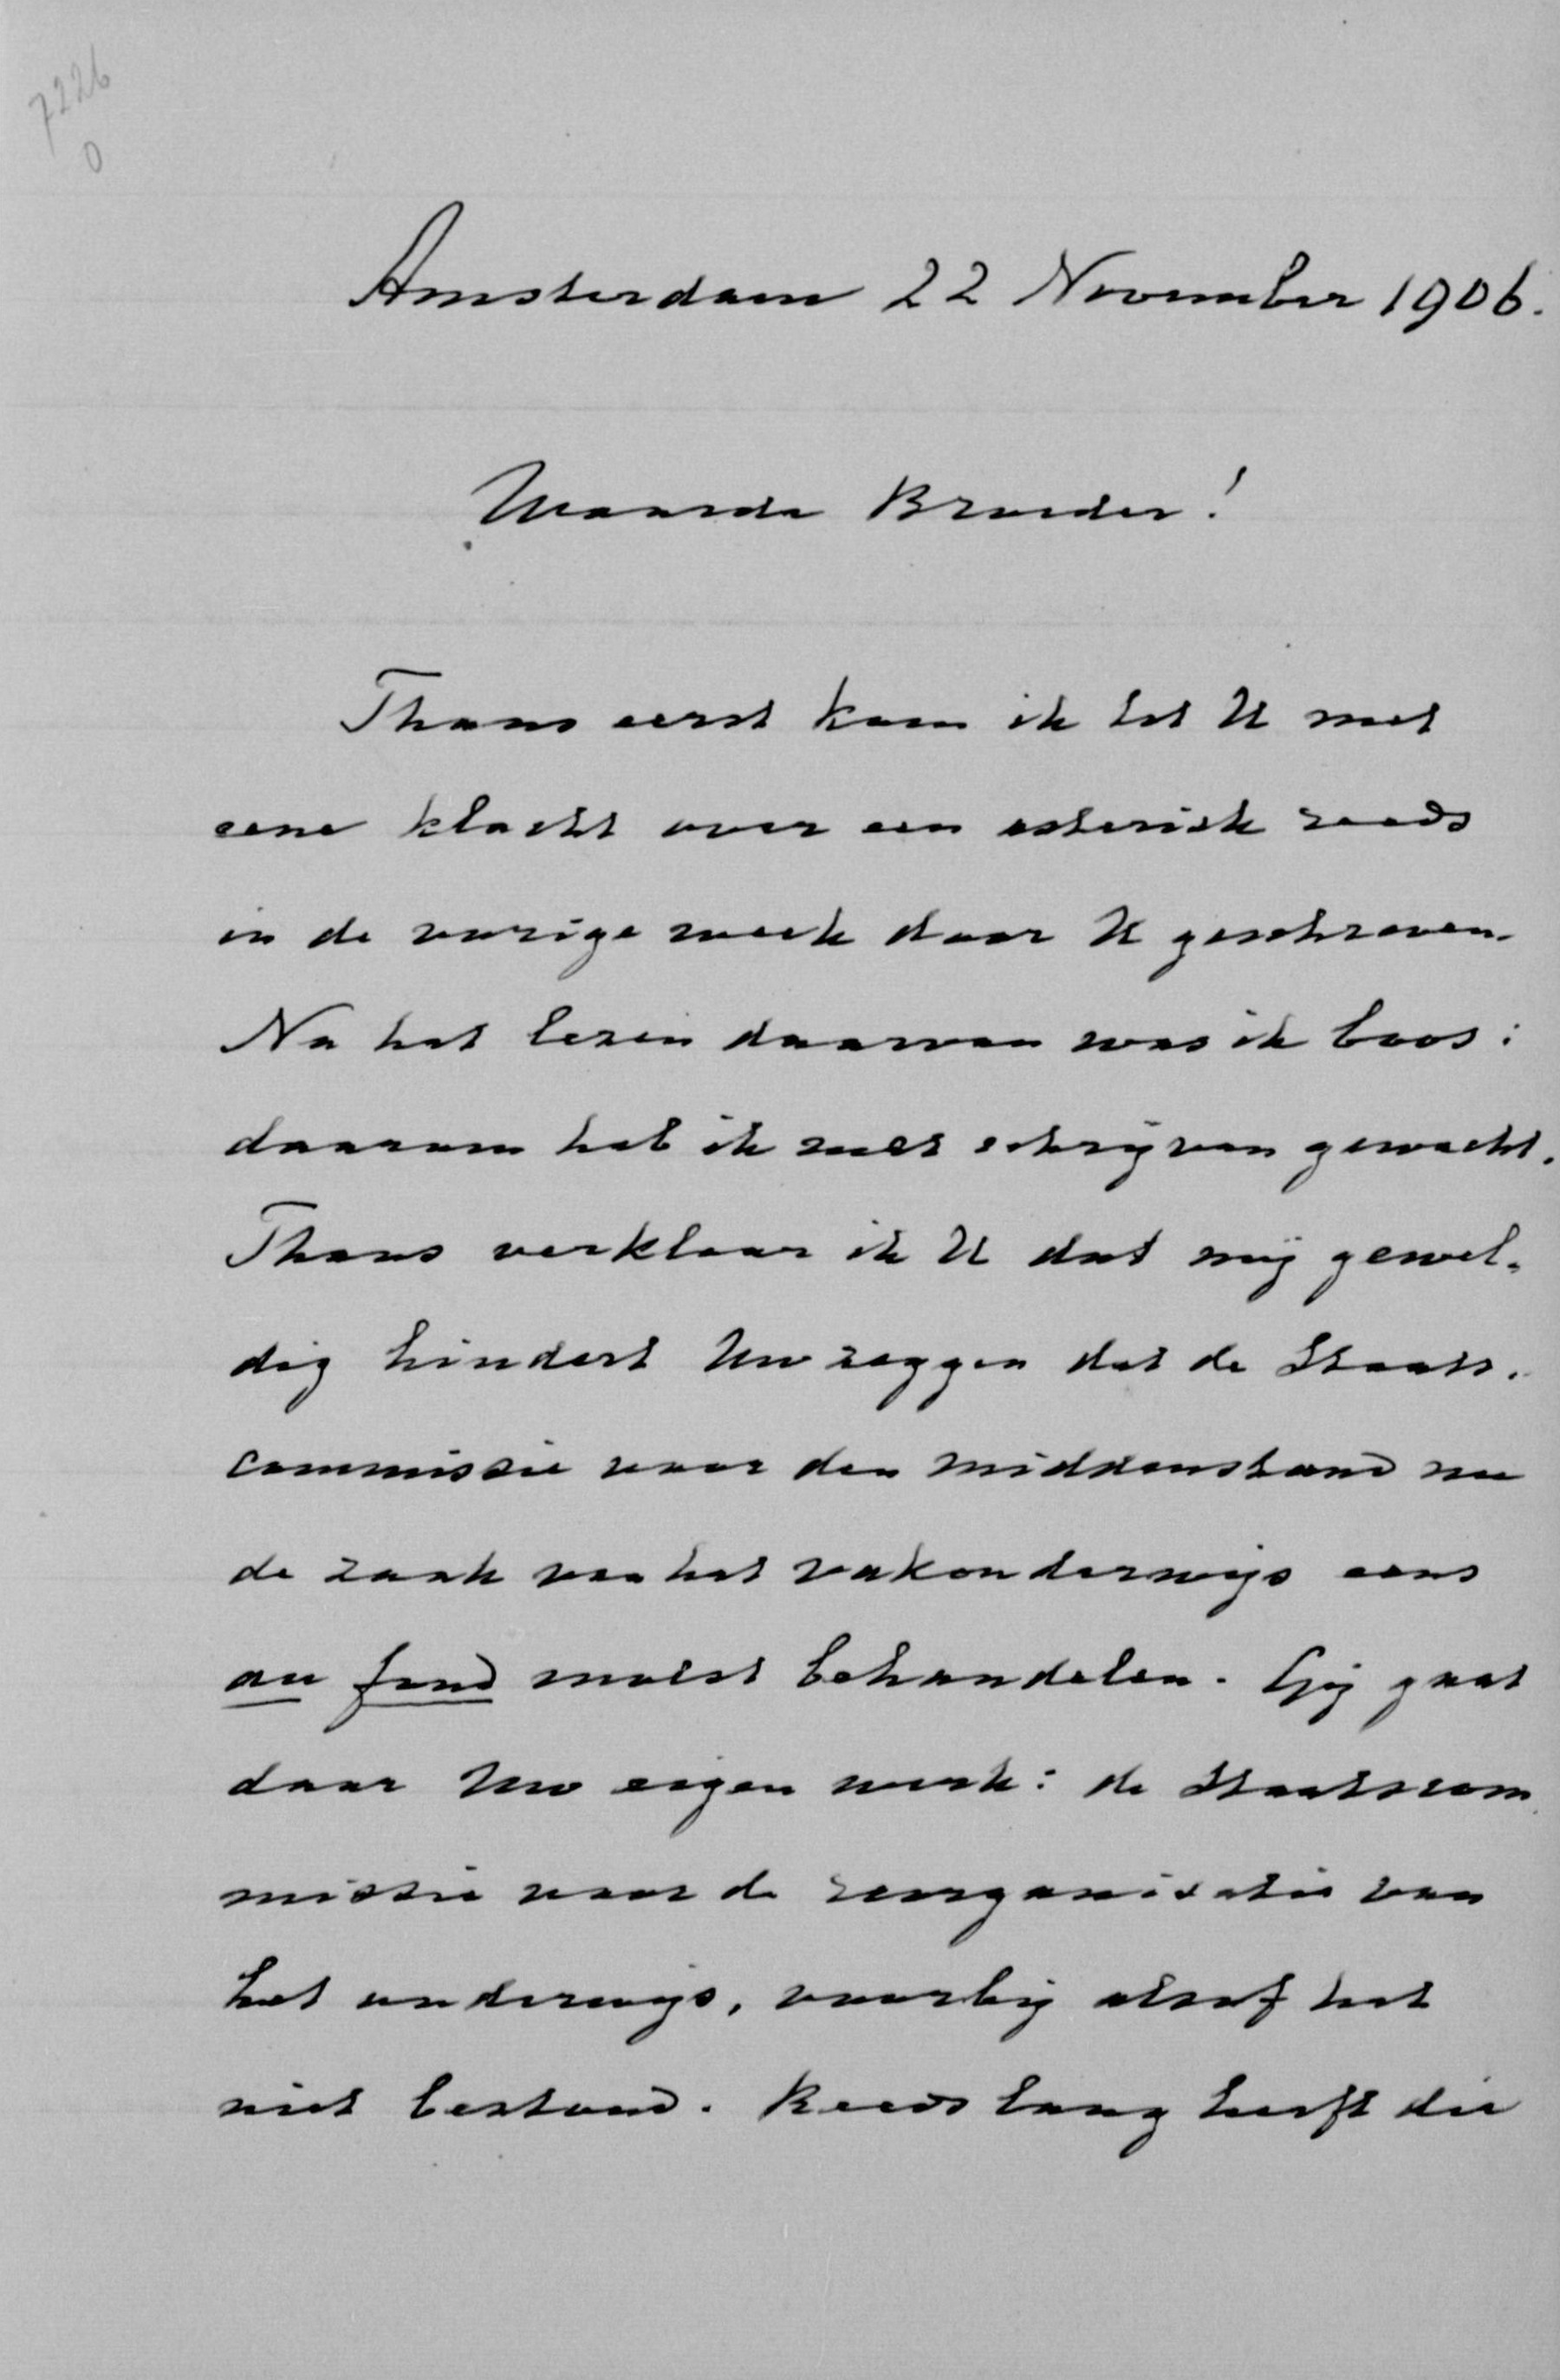 7226
0
Amsterdam 22 November 1906.
Waarde Broeder!
Thans eerst kom ik tot U met
eene klacht over een asterisk reeds
in de vorige week door U geschreven.
Na het lezen daarvan was ik boos:
daarom heb ik met schrijven gewacht.
Thans verklaar ik U dat mij gewel-
dig hindert Uw zeggen dat de Staats-
commissie voor den middenstand nu
de zaak van het vakonderwijs eens
au fond moest behandelen. Gij gaat
daar Uw eigen werk: de Staatscom
missie voor de reorganisatie van
het onderwijs, voorbij alsof het
niet bestond. Reeds lang heeft die